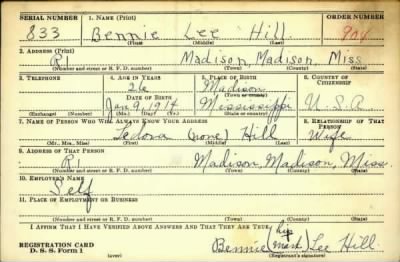 SERIAL NUMBER 1. NAME (Print) ORDER NUMBER
833 Bennie Lee Hill 904
(First) (Middle) (Last)
2. ADDRESS (Print)
R1 Madison, Madison, Miss
(Number and street or R. F. D. number) (Town) (County) (State)
3. TELEPHONE 4. AGE IN YEARS 5. PLACE OF BIRTH 6. COUNTRY OF CITIZENSHIP
26 Madison
DATE OF BIRTH (Town or county)
Jan 9, 1914 Mississippi U.S.A
(Exchange) (Number) (Mo.) (Day) (Yr.) (State or country)
7. NAME OF PERSON WHO WILL ALWAYS KNOW YOUR ADDRESS 8. RELATIONSHIP OF THAT PERSON
(none) Hill Wife
(Mr., Mrs., Miss) (First) (Middle) (Last)
9. ADDRESS OF THAT PERSON
R1 Madison, Madison, Miss.
(Number and street or R. F. D. number) (Town) (County) (State)
10. EMPLOYER'S NAME
Self
11. PLACE OF EMPLOYMENT OR BUSINESS
(Number and street or R. F. D. number) (Town) (County) (State)
I AFFIRM THAT I HAVE VERIFIED ABOVE ANSWERS AND THAT THEY ARE TRUE.
his
REGISTRATION CARD Bennie (mark) Lee Hill.
D. S. S. Form 1 (over) (Registrant's signature)